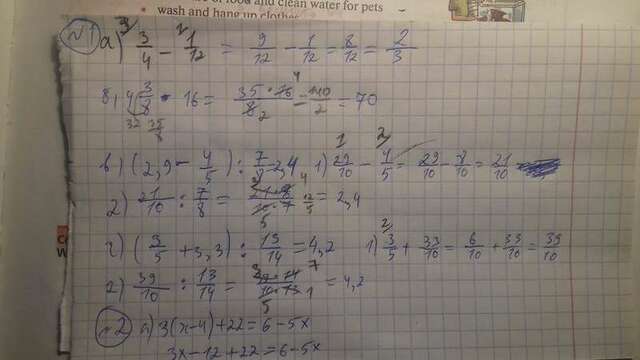 wash and hang up clothes
clean water for pets
№1
а) 3/4 - 1/12 = 9/12 - 1/12 = 8/12 = 2/3
4 3/8 · 16 = 35·16/8 = 140/2 = 70
б) (2,9 - 4/5) : 7/8 = 2,4 1) 29/10 - 4/5 = 29/10 - 8/10 = 21/10
2) 21/10 : 7/8 = 12/5 = 2,4
(3/5 + 3,3) : 13/14 = 4,2 1) 3/5 + 33/10 = 6/10 + 33/10 = 39/10
2) 39/10 : 13/14 = = 4,2
№2
а) 3(x-4)+22=6-5x
3x-12+22=6-5x